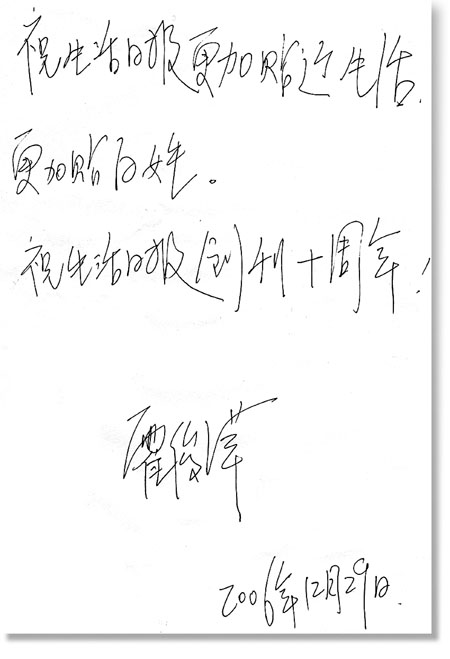 祝生活日报更加贴近生活,
更加贴百姓。
祝生活日报创刊十周年!
霍俊萍
2006年12月29日.